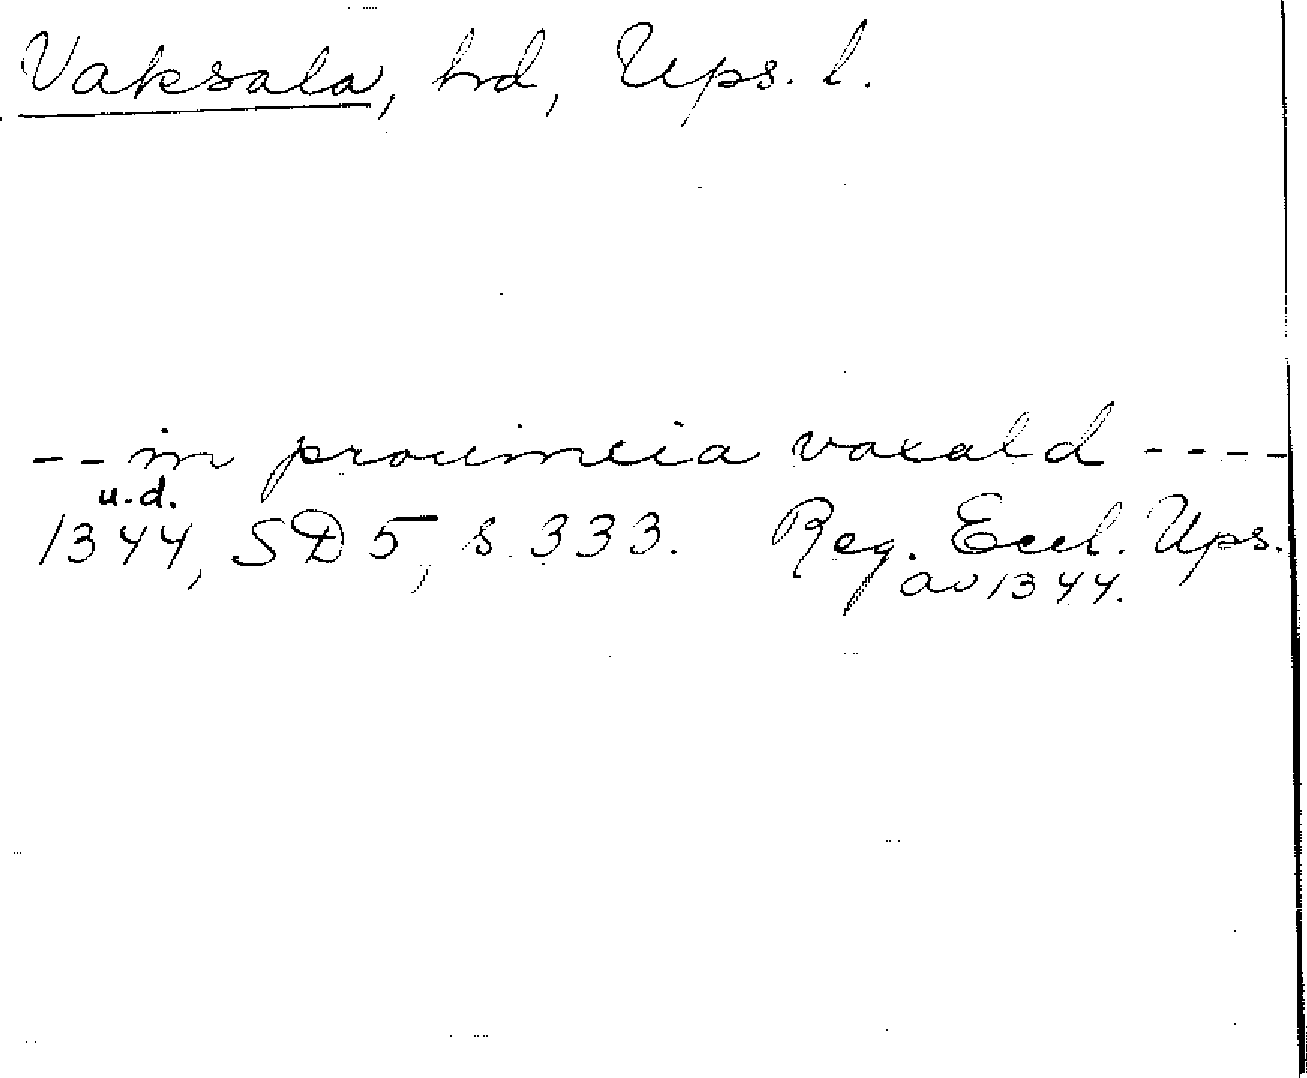 Vaksala, hd, Ups. l.
-- in prouincia vaxald ----
u.d.
1344, SD 5, s. 333. Reg. Eccl. Ups.
av 1344.